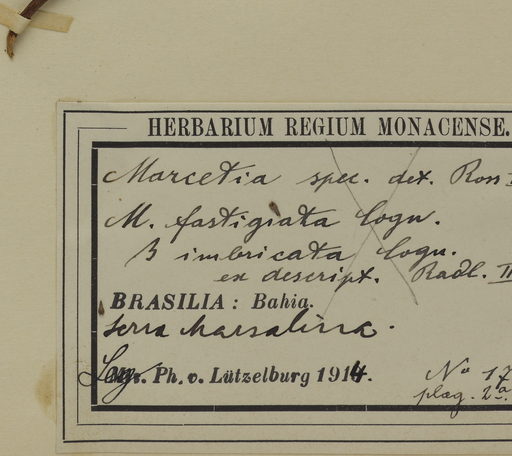 HERBARIUM REGIUM MONACENSE.
Marcetia spec. det. Ross
M. fastigiata Cogn.
β imbricata Cogn.
ex descript. Radl. II
BRASILIA: Bahia.
Serra Marsalina.
Leg. Ph. v. Lützelburg 1914.
No 17
plag. 2a.